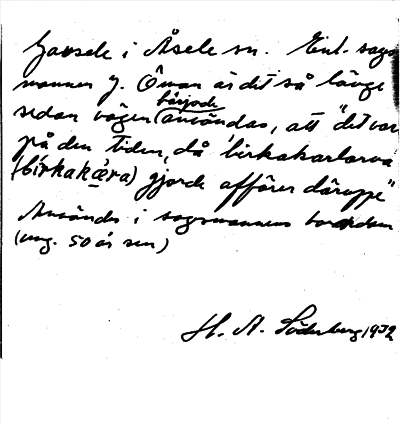 Gavsele i Åsele sn. Enl. sages
mannen J. Öman är det så länge
sedan vägen (började användas, att "det var
på den tiden, då 'birkakarlarna'
(bírkakæ̀ra) gjorde affärer däruppe"
Användes i sagesmannens barndom
(ung. 50 år sen)
H. A. Söderberg 1932